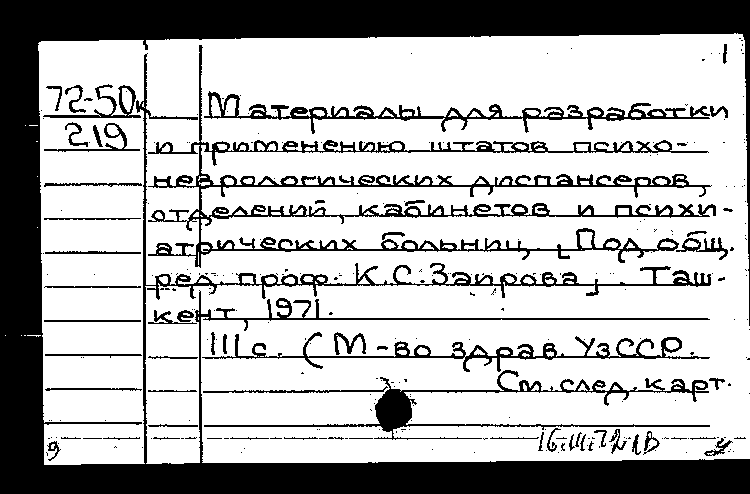 1
72-50к Материалы для разработки
219 и применению штатов психо-
неврологических диспансеров,
отделений, кабинетов и психи-
атрических больниц. [Под общ.
ред. проф. К.С.Заирова]. Таш-
кент, 1971.
111с. (М-во здрав. УзССР.
См.след.карт.
9 16.III.72